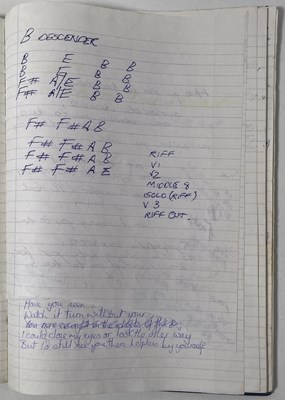 B DESCENDER
B E B B
B E B B
F# A/E B B
F# A/E B B
F# F# A B
F# F# A B
F# F# A B
F# F# A E
RIFF
V1
V2
MIDDLE 8
SOLO (RIFF)
V 3
RIFF OUT
Have you seen
Watch it turn without your
You
I could close my eyes or look the other way
But I'd still see you there helpless by